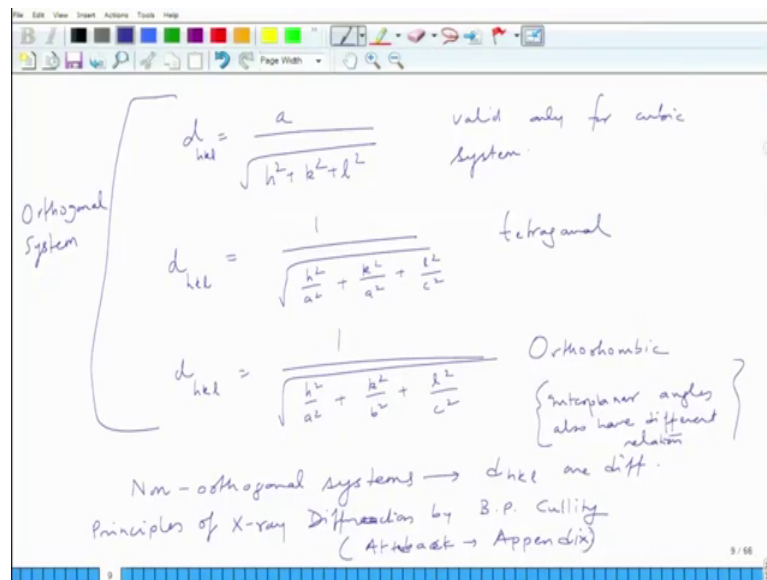 File Edit View Insert Actions Tools Help
B I
Page Width
Orthogonal System
d_hkl = a / √(h² + k² + l²) valid only for cubic system.
d_hkl = 1 / √(h²/a² + k²/a² + l²/c²) tetragonal
d_hkl = 1 / √(h²/a² + k²/b² + l²/c²) Orthorhombic
{interplanar angles
also have different
relation}
Non-orthogonal systems → d_hkl are diff.
Principles of X-ray Diffraction by B.P. Cullity
( → Appendix)
9 / 66
9